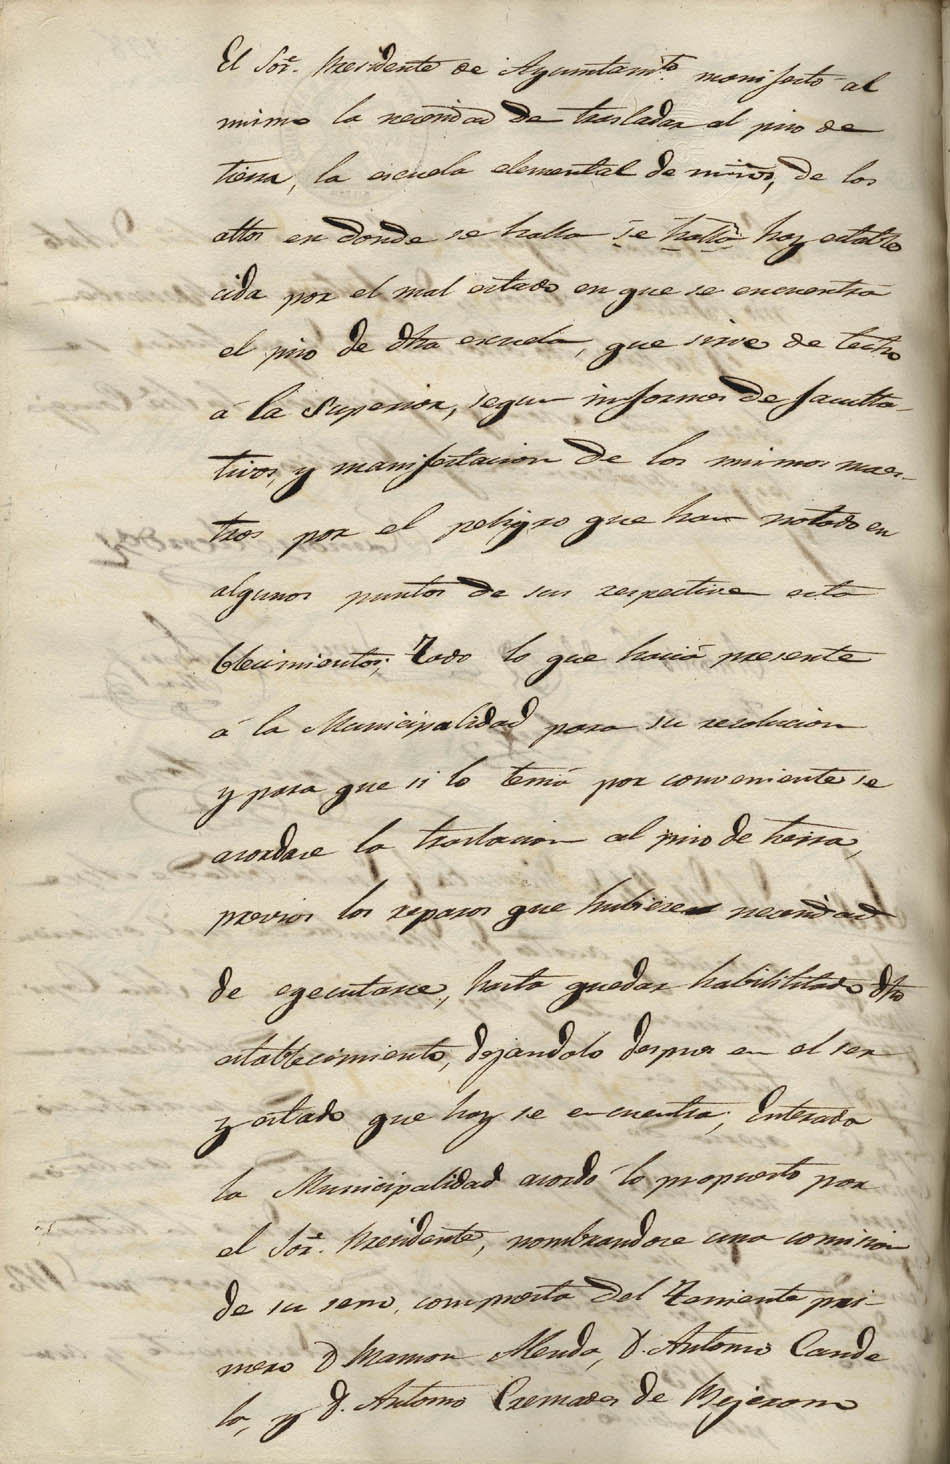 El Sor. Presidente de Ayuntamto. manifestó al
mismo la necesidad de trasladar al piso de
tierra, la escuela elemental de niños, de los
altos en donde se halla se halla hoy estable
cida por el mal estado en que se encuentra
el piso de dha escuela, que sirve de techo
á la Superior, segun informes de faculta-
tivos, y manifestacion de los mismos maes-
tros por el peligro que han notado en
algunos puntos de sus respectivos esta
blecimientos; Todo lo que hacia presente
á la Municipalidad para su resolucion
y para que si lo tenia por conveniente se
acordase la traslacion al piso de tierra,
previos los reparos que hubiere necesidad
de egecutarse, hasta quedar habilitado dho
establecimiento, dejandolo despues en el ser
y estado que hoy se encuentra; Enterada
la Municipalidad acordó lo propuesto por
el Sor. Presidente, nombrandose una comision
de su seno, compuesta del Teniente pri-
mero D Mamon Menda, D. Antonio Cande
la, y D. Antonio Cremades de